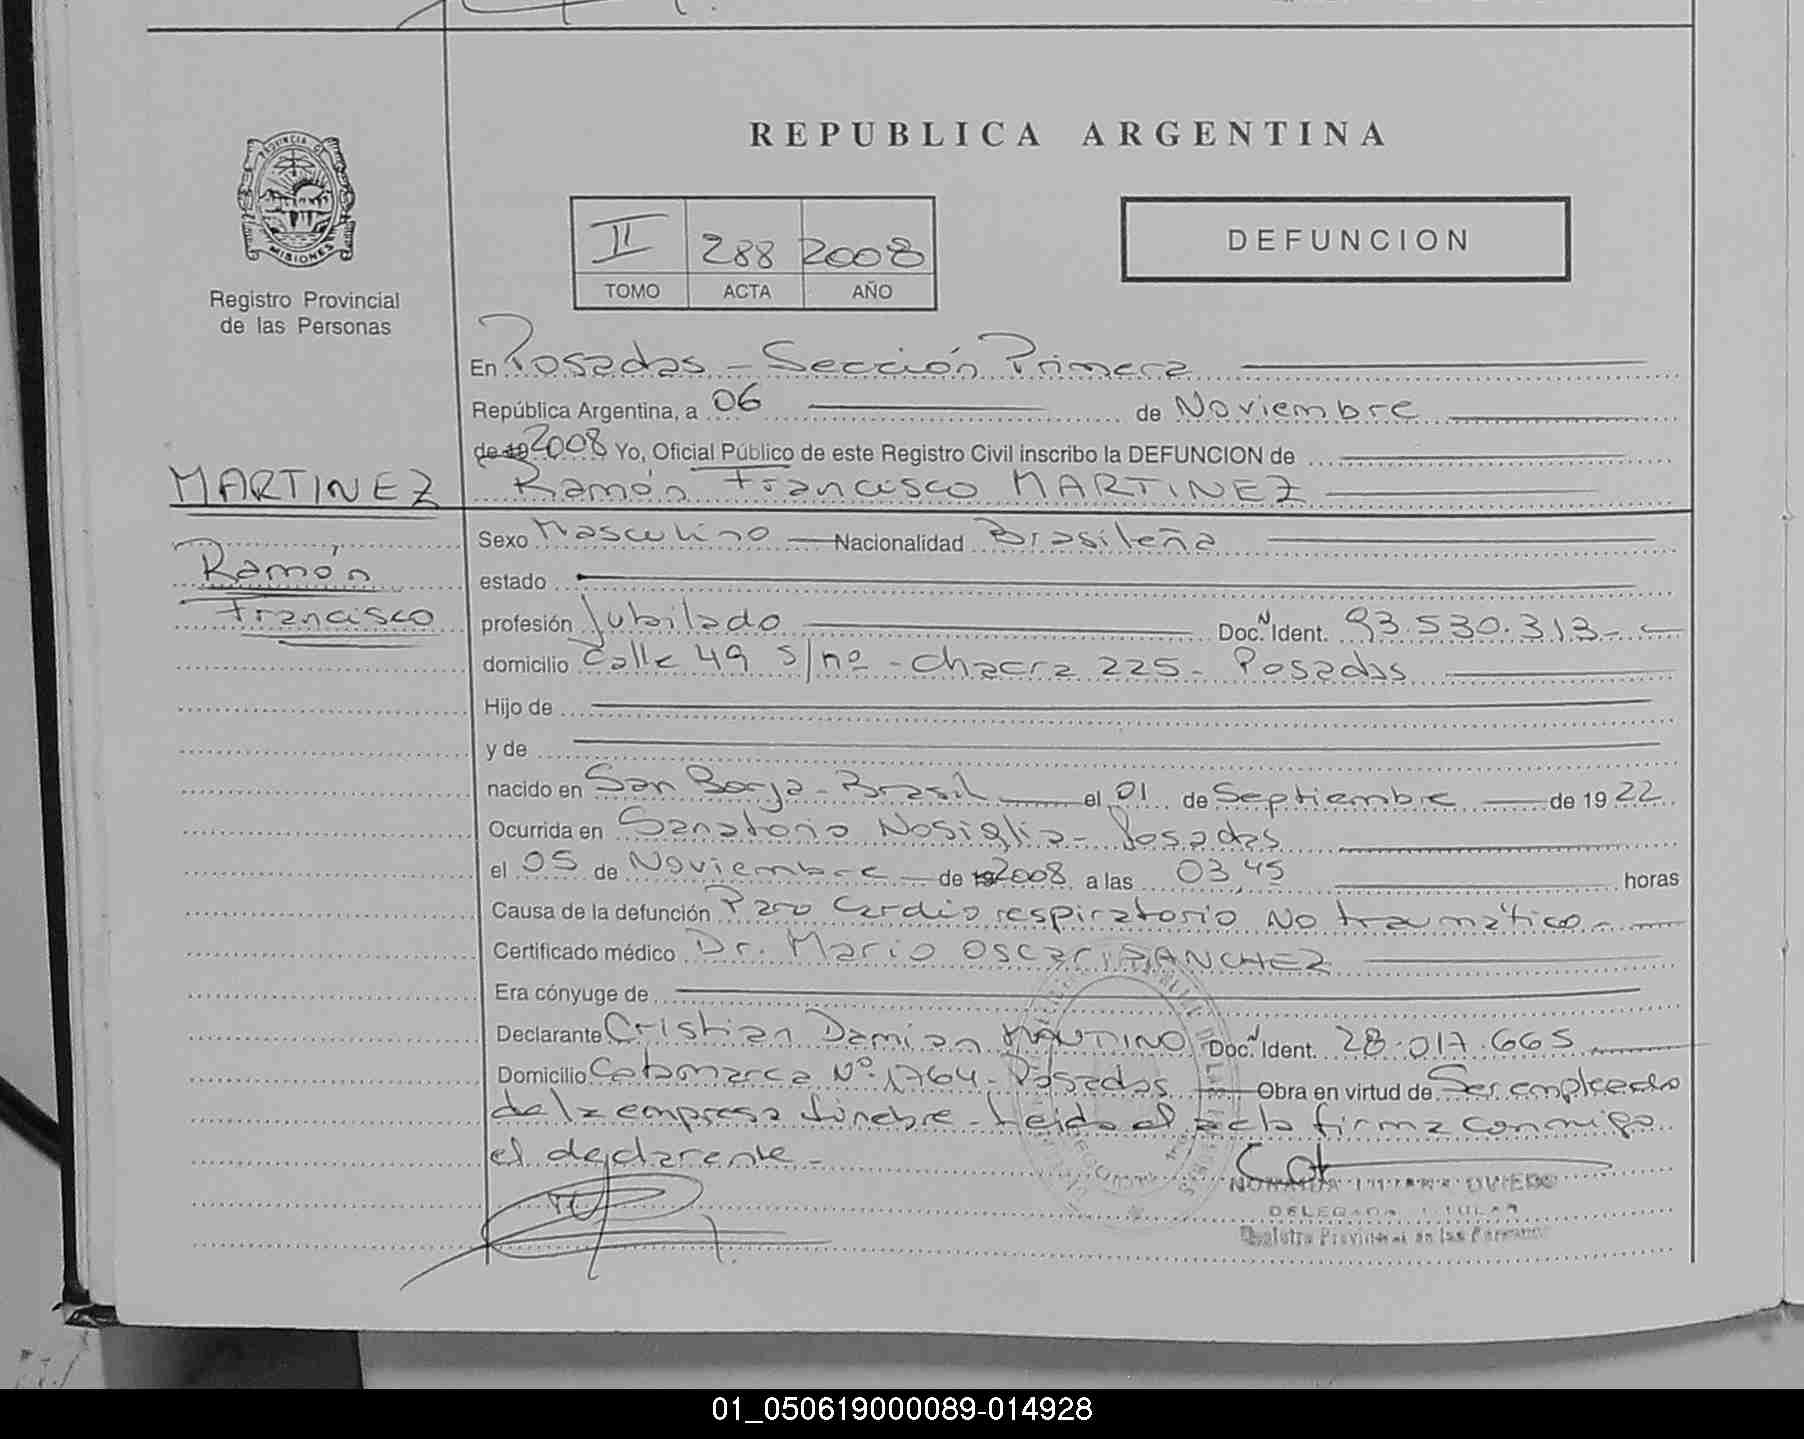 REPUBLICA ARGENTINA
PROVINCIA
MISIONES
Registro Provincial
de las Personas
II 288 2008
TOMO ACTA AÑO
DEFUNCION
En Posadas - Sección Primera
República Argentina, a 06 de Noviembre
de 19 2008 Yo, Oficial Público de este Registro Civil inscribo la DEFUNCION de
MARTINEZ
Ramón Francisco MARTINEZ
Ramón
Francisco
Sexo Masculino Nacionalidad Brasileña
estado
profesión Jubilado Doc. N Ident. 93.530.313-
domicilio Calle 49 s/nº - chacra 225 - Posadas
Hijo de
y de
nacido en San Borja - Brasil el 01 de Septiembre de 19 22
Ocurrida en Sanatorio Nosiglia - Posadas
el 05 de Noviembre de 19 2008 a las 03,45 horas
Causa de la defunción Paro Cardio respiratorio No traumático -
Certificado médico Dr. Mario Oscar SANCHEZ
Era cónyuge de
Declarante Cristian Damian Doc. N Ident. 28.017.665
Domicilio Catamarca Nº 1764 - Posadas Obra en virtud de Ser empleado
de la empresa fúnebre - Leida el acta firma conmigo
el declarante -
OVIEDO
DELEGADA TITULAR
Registro Provincial de las Personas
01_050619000089-014928